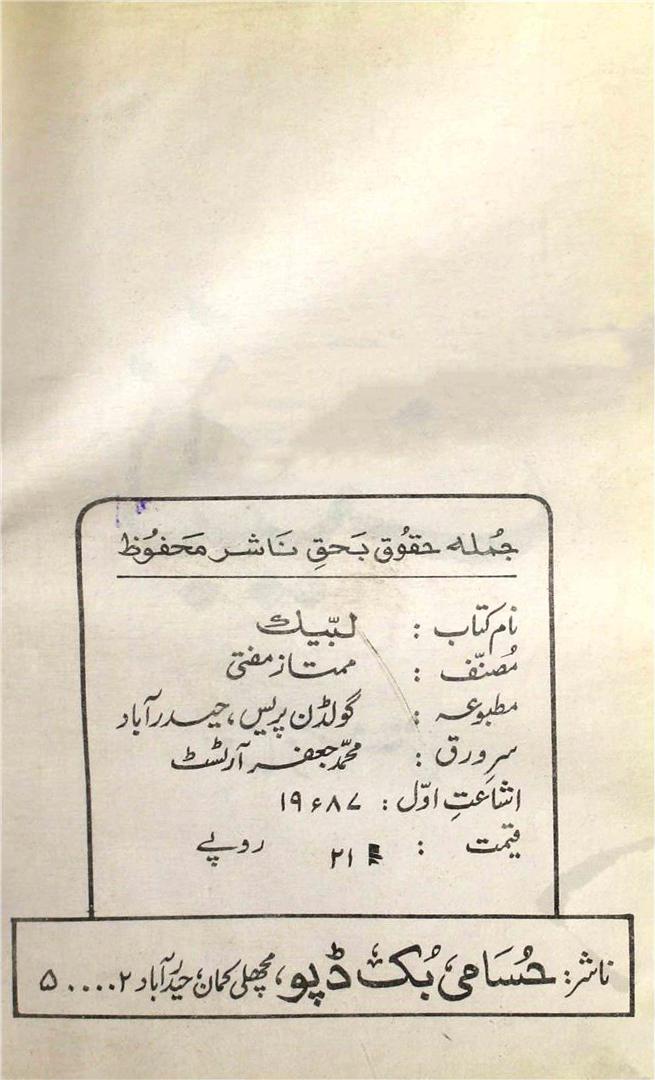 جُملہ حقُوق بَحقِ نَاشر مَحفُوظ
نام کتاب : لبّیک
مُصنّف : ممتاز مفتی
مطبوعہ : گولڈن پریس، حیدرآباد
سرِ ورق : محمّد جعفر آرٹسٹ
اشاعتِ اوّل : ۱۹۸۷ء
قیمت : ۲۱ روپے
ناشر: حُسَامی بُک ڈپو، مچھلی کمان، حیدرآباد ۵۰۰۰۰۲